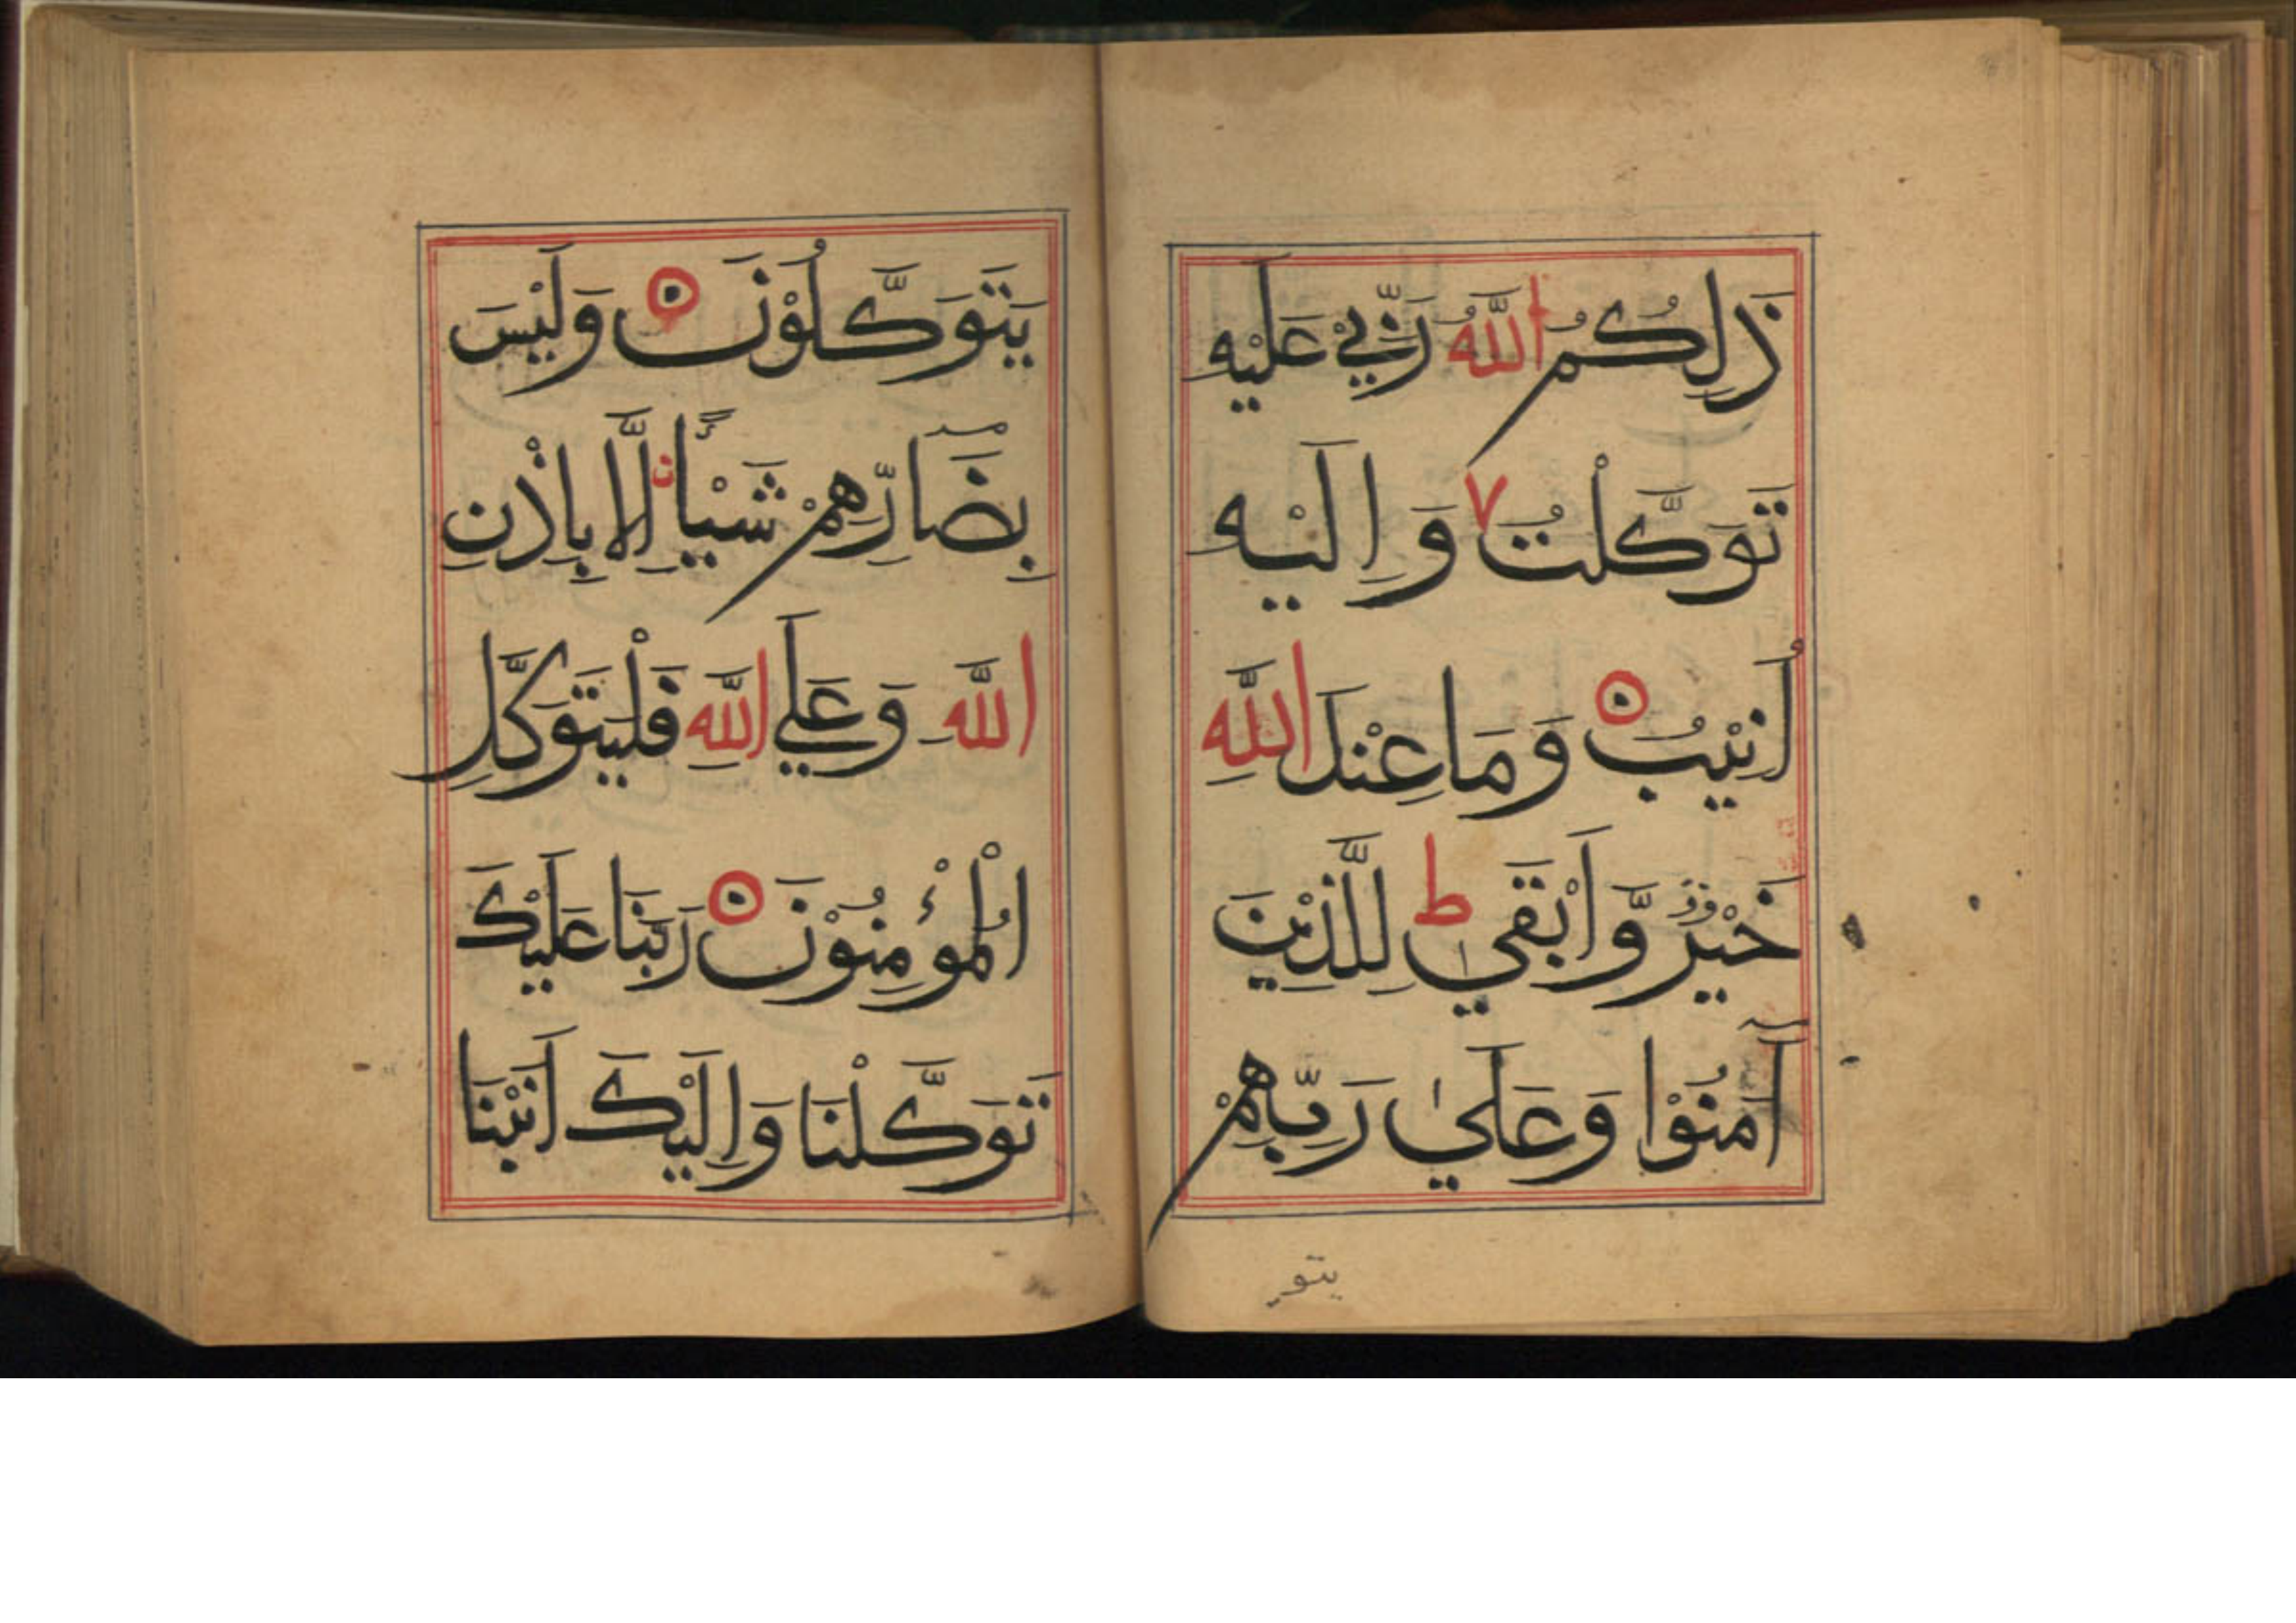 ذَلِكُمُ اللَّهُ رَبِّيْ عَلَيْهِ
تَوَكَّلْتُ وَاِلَيْهِ
اُنِيْبُ وَمَا عِنْدَ اللَّهِ
خَيْرٌ وَّاَبْقٰي ط لِلَّذِيْنَ
آمَنُوْا وَعَلَىٰ رَبِّهِمْ
يتو
يَتَوَكَّلُوْنَ وَلَيْسَ
بِضَآرِّهِمْ شَيْأً اِلَّا بِاِذْنِ
اللَّهِ وَعَلَي اللَّهِ فَلْيَتَوَكَّلِ
الْمُؤْمِنُوْنَ رَبَّنَا عَلَيْكَ
تَوَكَّلْنَا وَاِلَيْكَ اَنَبْنَا